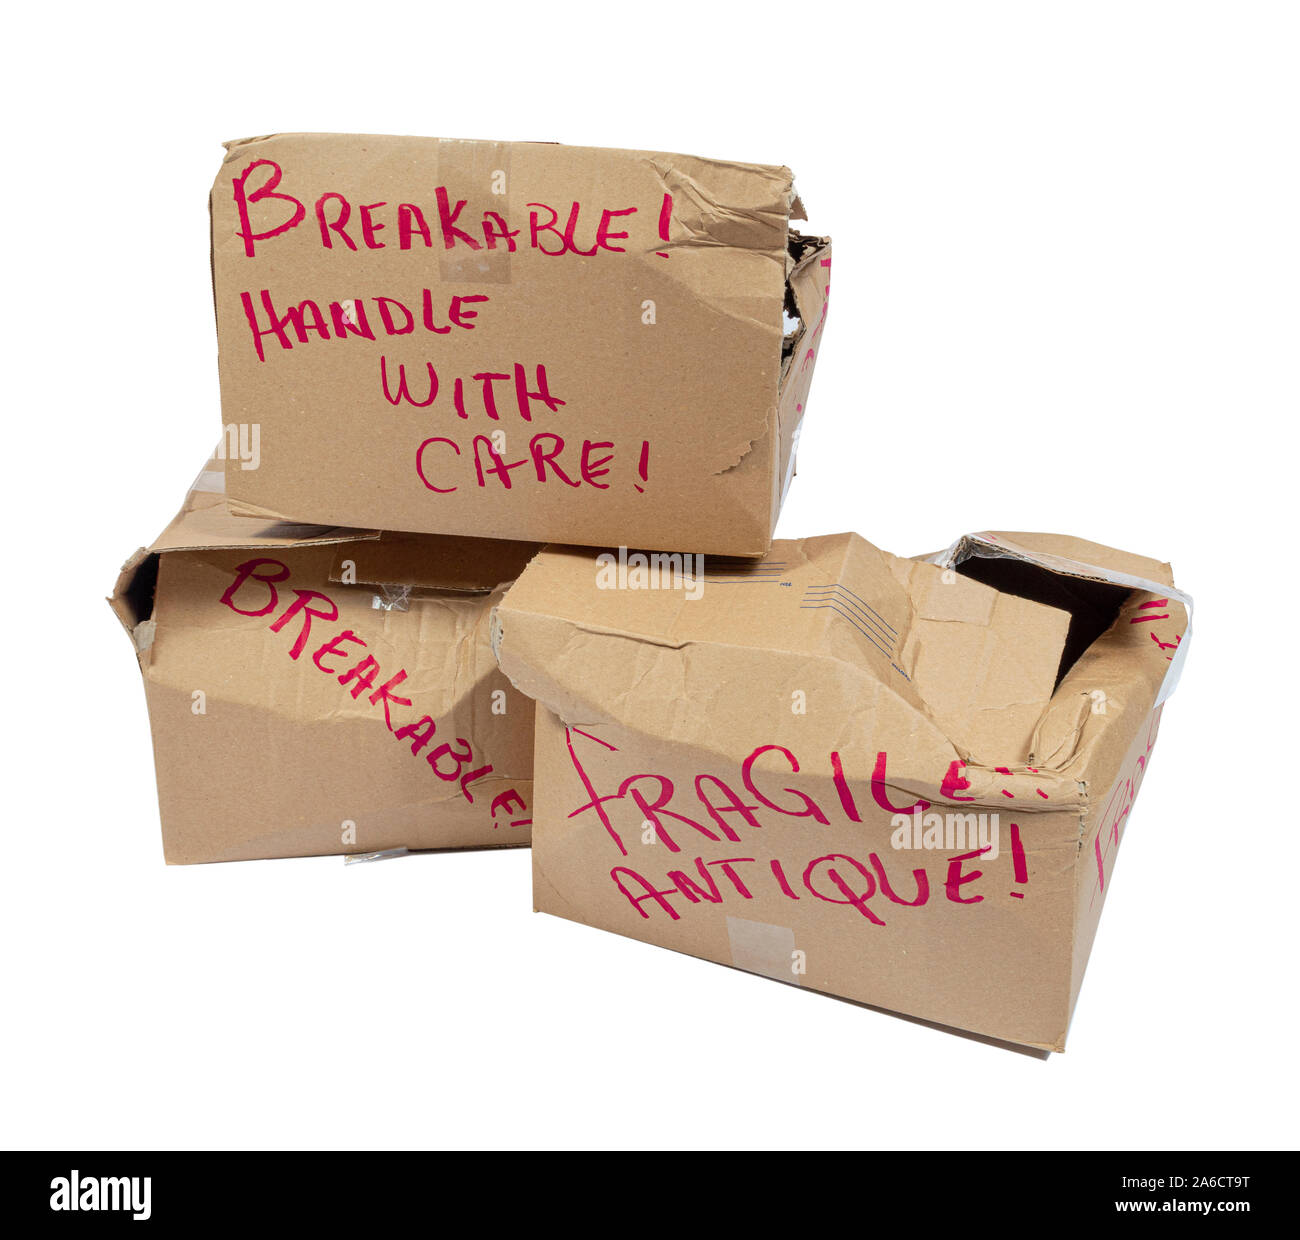 BREAKABLE!
HANDLE
WITH
CARE!
BREAKABLE!
FRAGILE!!
ANTIQUE!
alamy
alamy
Image ID: 2A6CT9T
www.alamy.com